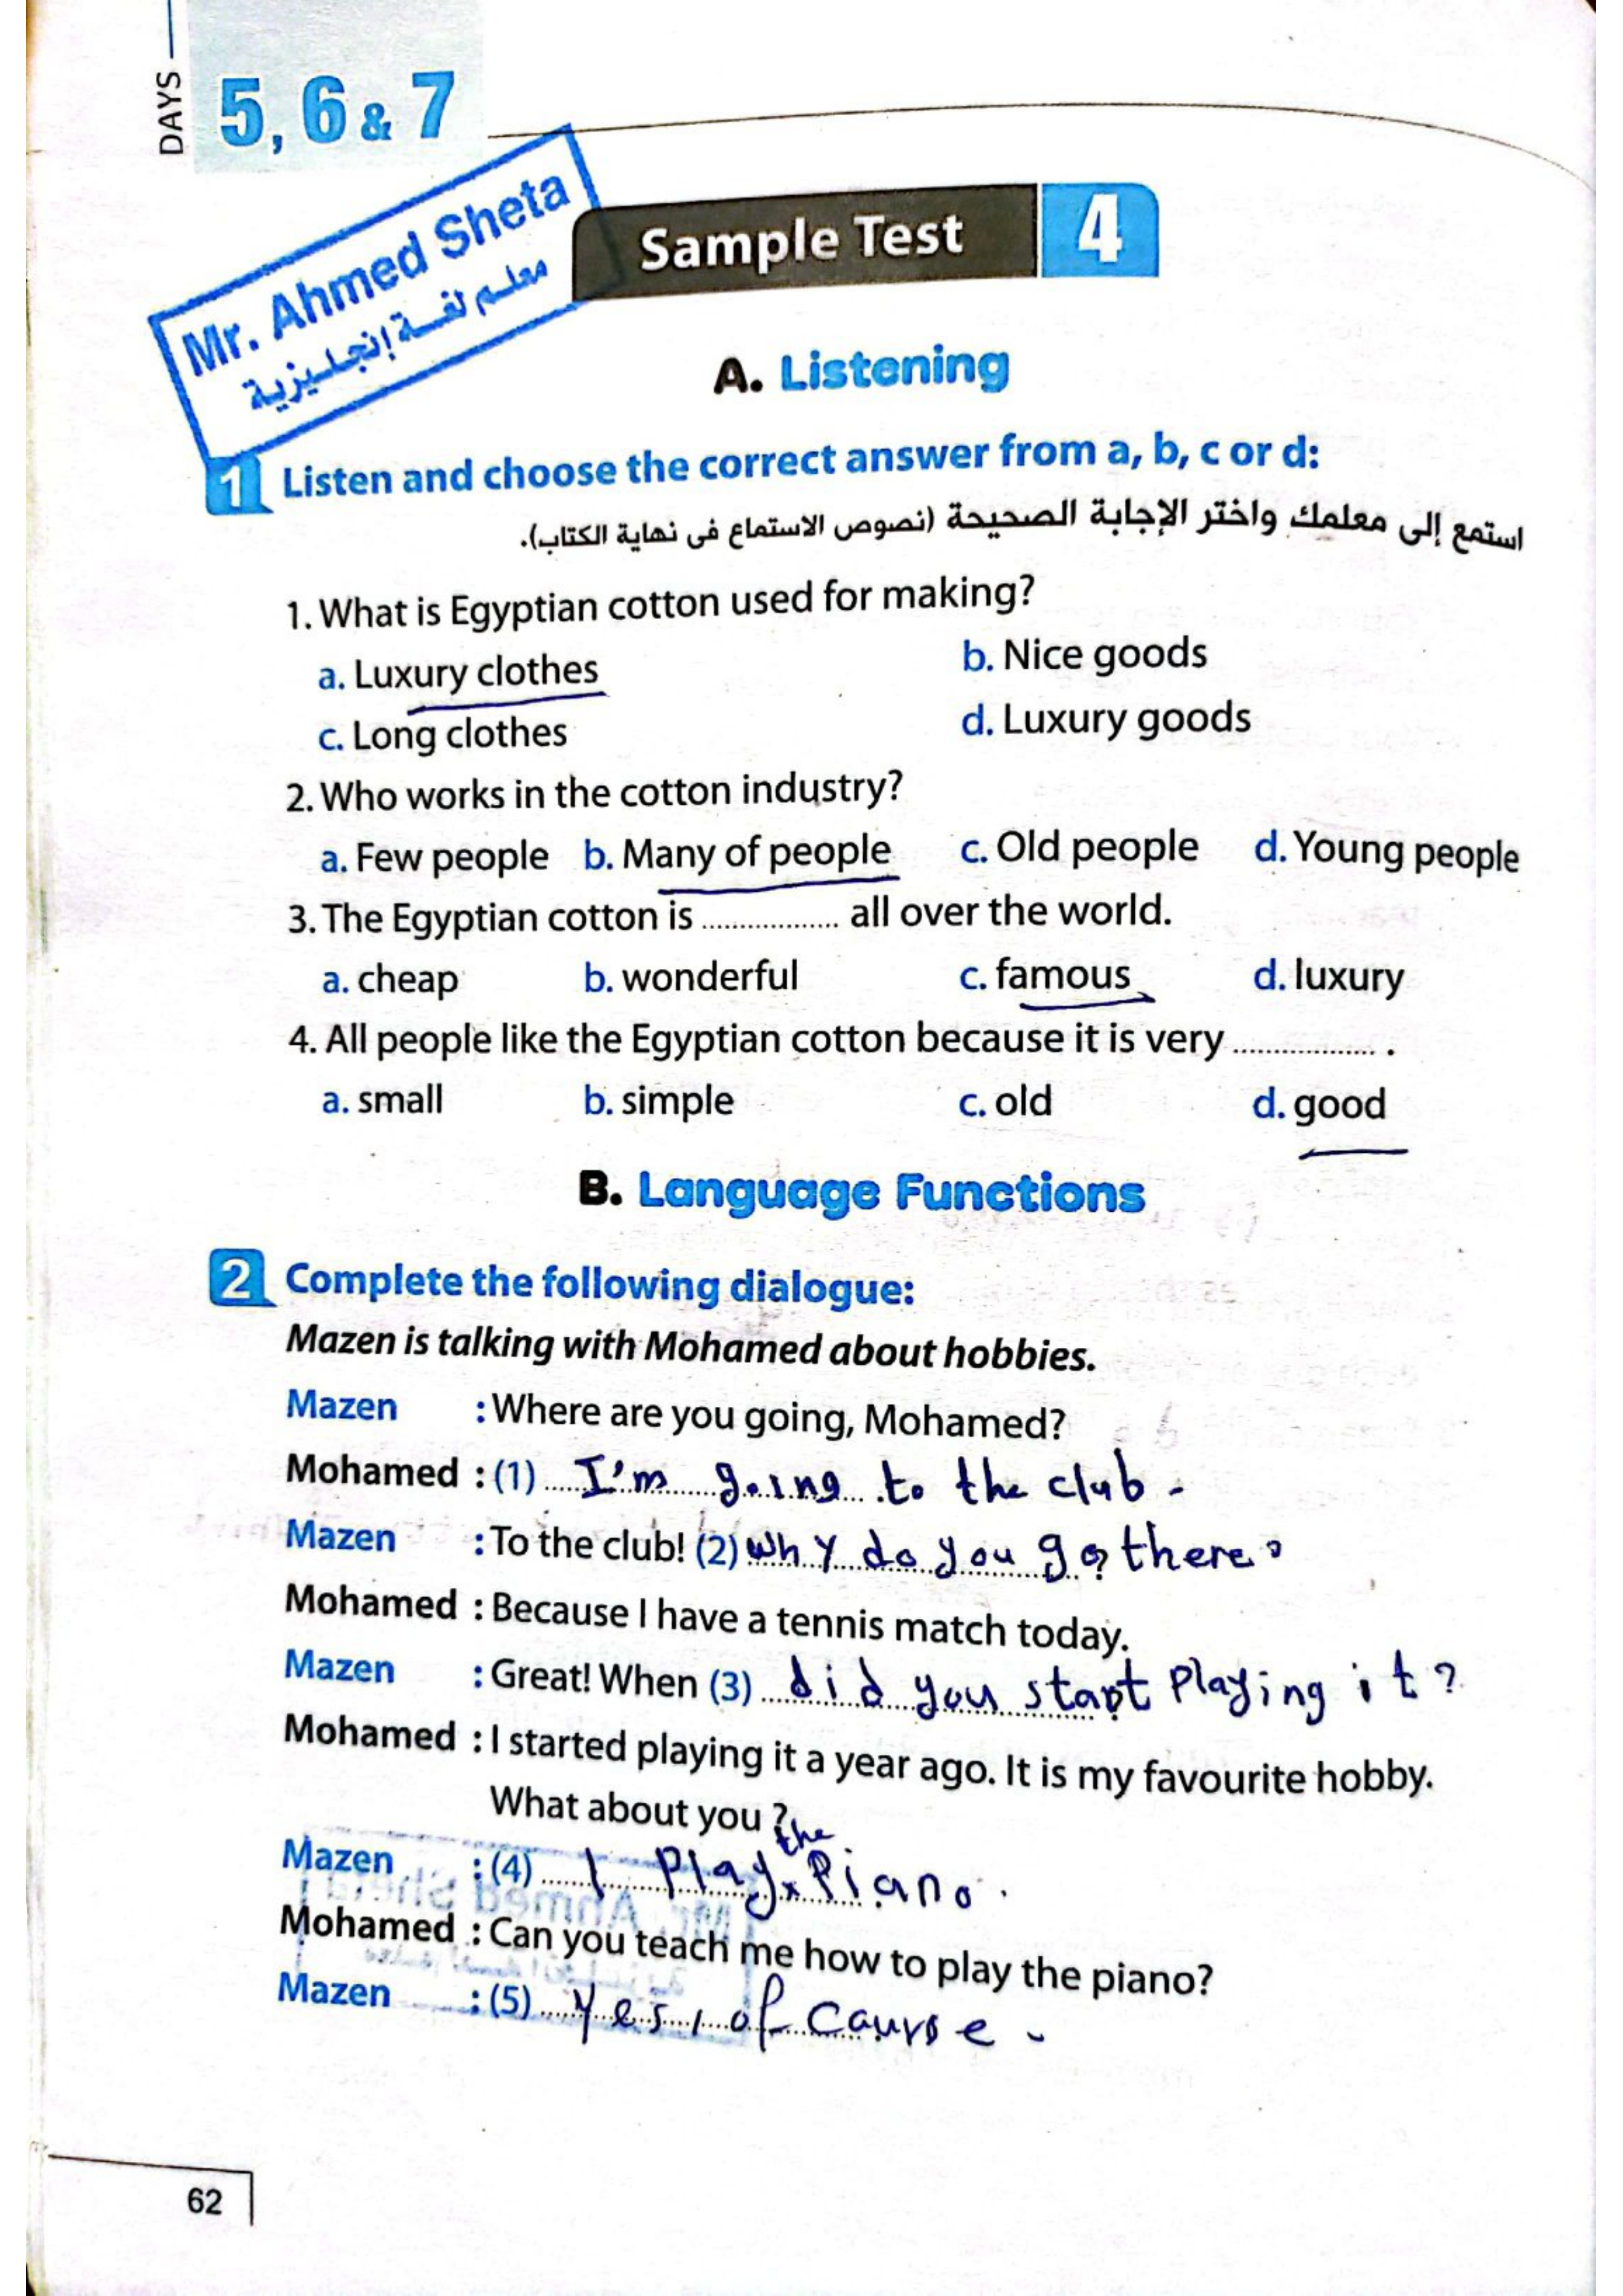 DAYS
5, 6 & 7
Mr. Ahmed Sheta
معلم لغة إنجليزية
Sample Test 4
A. Listening
1 Listen and choose the correct answer from a, b, c or d:
استمع إلى معلمك واختر الإجابة الصحيحة (نصوص الاستماع فى نهاية الكتاب).
1. What is Egyptian cotton used for making?
a. Luxury clothes b. Nice goods
c. Long clothes d. Luxury goods
2. Who works in the cotton industry?
a. Few people b. Many of people c. Old people d. Young people
3. The Egyptian cotton is ................. all over the world.
a. cheap b. wonderful c. famous d. luxury
4. All people like the Egyptian cotton because it is very ................. .
a. small b. simple c. old d. good
B. Language Functions
2 Complete the following dialogue:
Mazen is talking with Mohamed about hobbies.
Mazen : Where are you going, Mohamed?
Mohamed : (1) I'm going to the club.
Mazen : To the club! (2) Why do you go there?
Mohamed : Because I have a tennis match today.
Mazen : Great! When (3) did you start playing it?
Mohamed : I started playing it a year ago. It is my favourite hobby.
What about you ?
Mazen : (4) I play the piano.
Mohamed : Can you teach me how to play the piano?
Mazen : (5) Yes, of caurse.
62